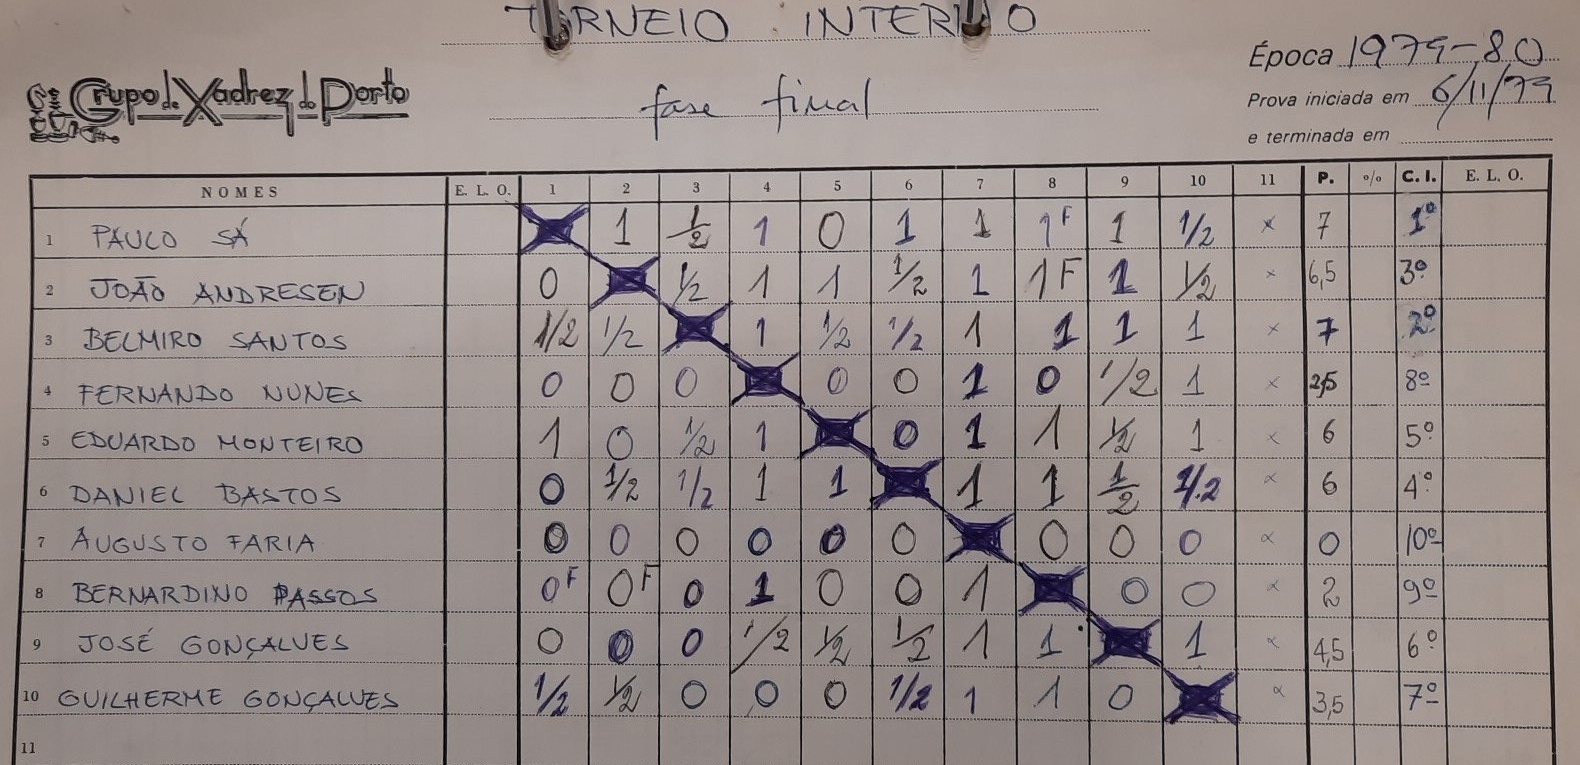 TORNEIO INTERNO
Época 1979-80
Grupo de Xadrez do Porto
fase final
Prova iniciada em 6/11/79
e terminada em
NOMES E. L. O. 1 2 3 4 5 6 7 8 9 10 11 P. % C. I. E. L. O.
1 PAULO SÁ 1 1/2 1 0 1 1 1F 1 1/2 x 7 1º
2 JOÃO ANDRESEN 0 1/2 1 1 1/2 1 1F 1 1/2 x 6,5 3º
3 BELMIRO SANTOS 1/2 1/2 1 1/2 1/2 1 1 1 1 x 7 2º
4 FERNANDO NUNES 0 0 0 0 0 1 0 1/2 1 x 2,5 8º
5 EDUARDO MONTEIRO 1 0 1/2 1 0 1 1 1/2 1 x 6 5º
6 DANIEL BASTOS 0 1/2 1/2 1 1 1 1 1/2 1/2 x 6 4º
7 AUGUSTO FARIA 0 0 0 0 0 0 0 0 0 x 0 10º
8 BERNARDINO PASSOS 0F 0F 0 1 0 0 1 0 0 x 2 9º
9 JOSÉ GONÇALVES 0 0 0 1/2 1/2 1/2 1 1 1 x 4,5 6º
10 GUILHERME GONÇALVES 1/2 1/2 0 0 0 1/2 1 1 0 x 3,5 7º
11